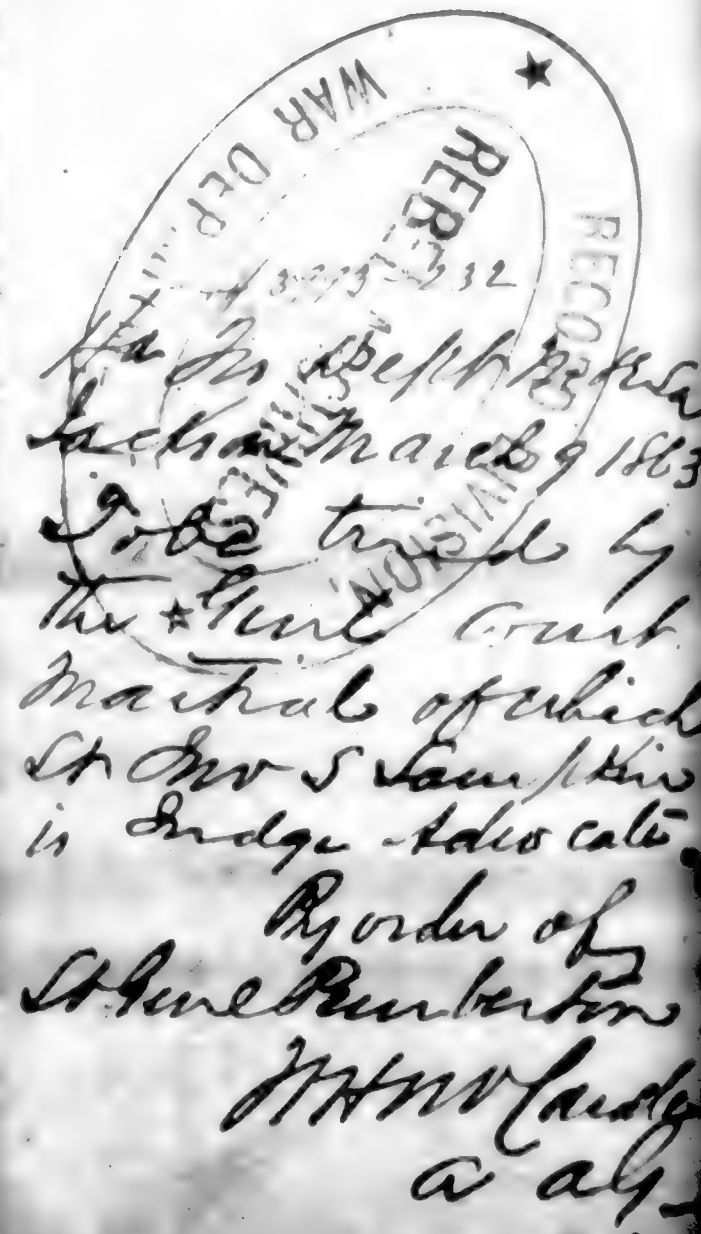 WAR DEP
REB ARCHIVES
RECORD DIVISION
Hd Qrs Dept
Jackson March 9 1863
To be tried by
the Genl Court
Martial of which
Lt Jno S Lampkin
is Judge Advocate
By order of
Lt Genl Pemberton
A A G